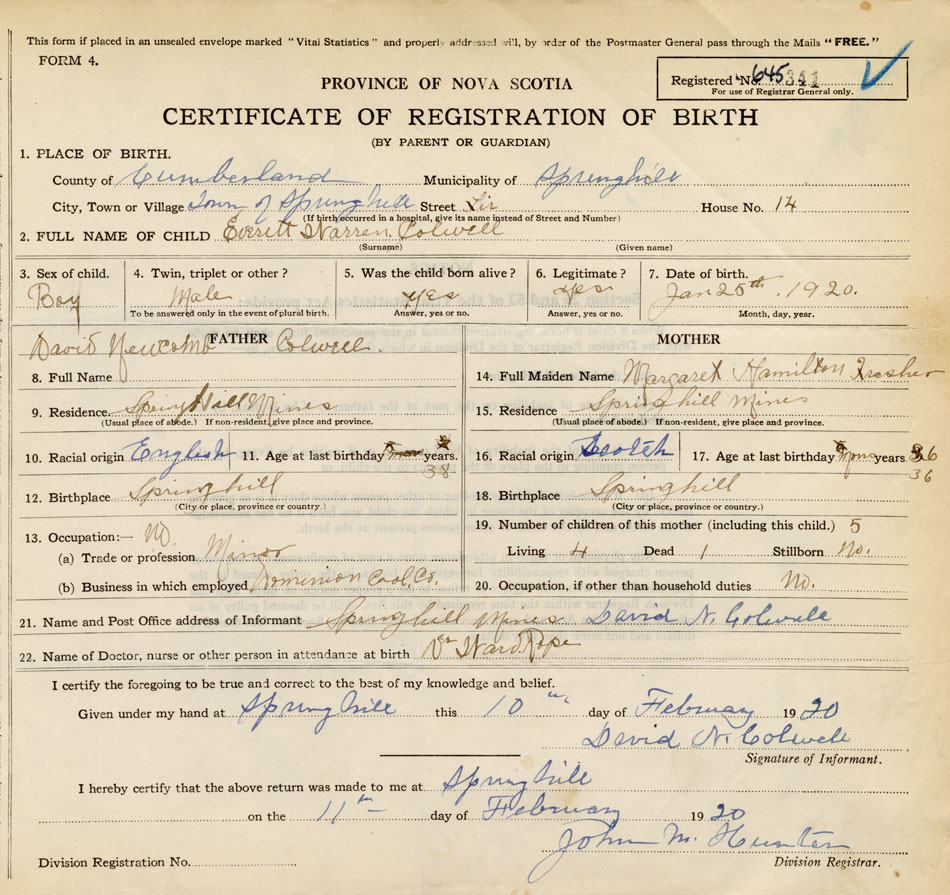 This form if placed in an unsealed envelope marked "Vital Statistics" and properly addressed will, by order of the Postmaster General pass through the Mails "FREE."
FORM 4.
Registered No. 645 341
For use of Registrar General only.
PROVINCE OF NOVA SCOTIA
CERTIFICATE OF REGISTRATION OF BIRTH
(BY PARENT OR GUARDIAN)
1. PLACE OF BIRTH.
County of Cumberland Municipality of Springhill
City, Town or Village Town of Springhill Street House No. 14
(If birth occurred in a hospital, give its name instead of Street and Number)
2. FULL NAME OF CHILD Everitt Warren Colwell
(Surname) (Given name)
3. Sex of child. 4. Twin, triplet or other? 5. Was the child born alive? 6. Legitimate? 7. Date of birth.
Boy Male yes yes Jan 25th. 1920.
To be answered only in the event of plural birth. Answer, yes or no. Answer, yes or no. Month, day, year.
FATHER MOTHER
David Newcomb Colwell.
8. Full Name 14. Full Maiden Name Margaret Hamilton
9. Residence. Spring Hill Mines 15. Residence Springhill Mines
(Usual place of abode.) If non-resident, give place and province. (Usual place of abode.) If non-resident, give place and province.
10. Racial origin English 11. Age at last birthday years. 38 16. Racial origin Scotch 17. Age at last birthday years 36
36
12. Birthplace Springhill 18. Birthplace Springhill
(City or place, province or country.) (City or place, province or country.)
13. Occupation:— No. 19. Number of children of this mother (including this child.) 5
(a) Trade or profession Minor Living 4 Dead 1 Stillborn No.
(b) Business in which employed Dominion Coal Co. 20. Occupation, if other than household duties No.
21. Name and Post Office address of Informant Springhill Mines David N. Colwell
22. Name of Doctor, nurse or other person in attendance at birth Dr Ward Rope
I certify the foregoing to be true and correct to the best of my knowledge and belief.
Given under my hand at Springhill this 10th day of February 1920
David N. Colwell
Signature of Informant.
I hereby certify that the above return was made to me at Springhill
on the 11th day of February 1920
John M. Hunter
Division Registration No. Division Registrar.